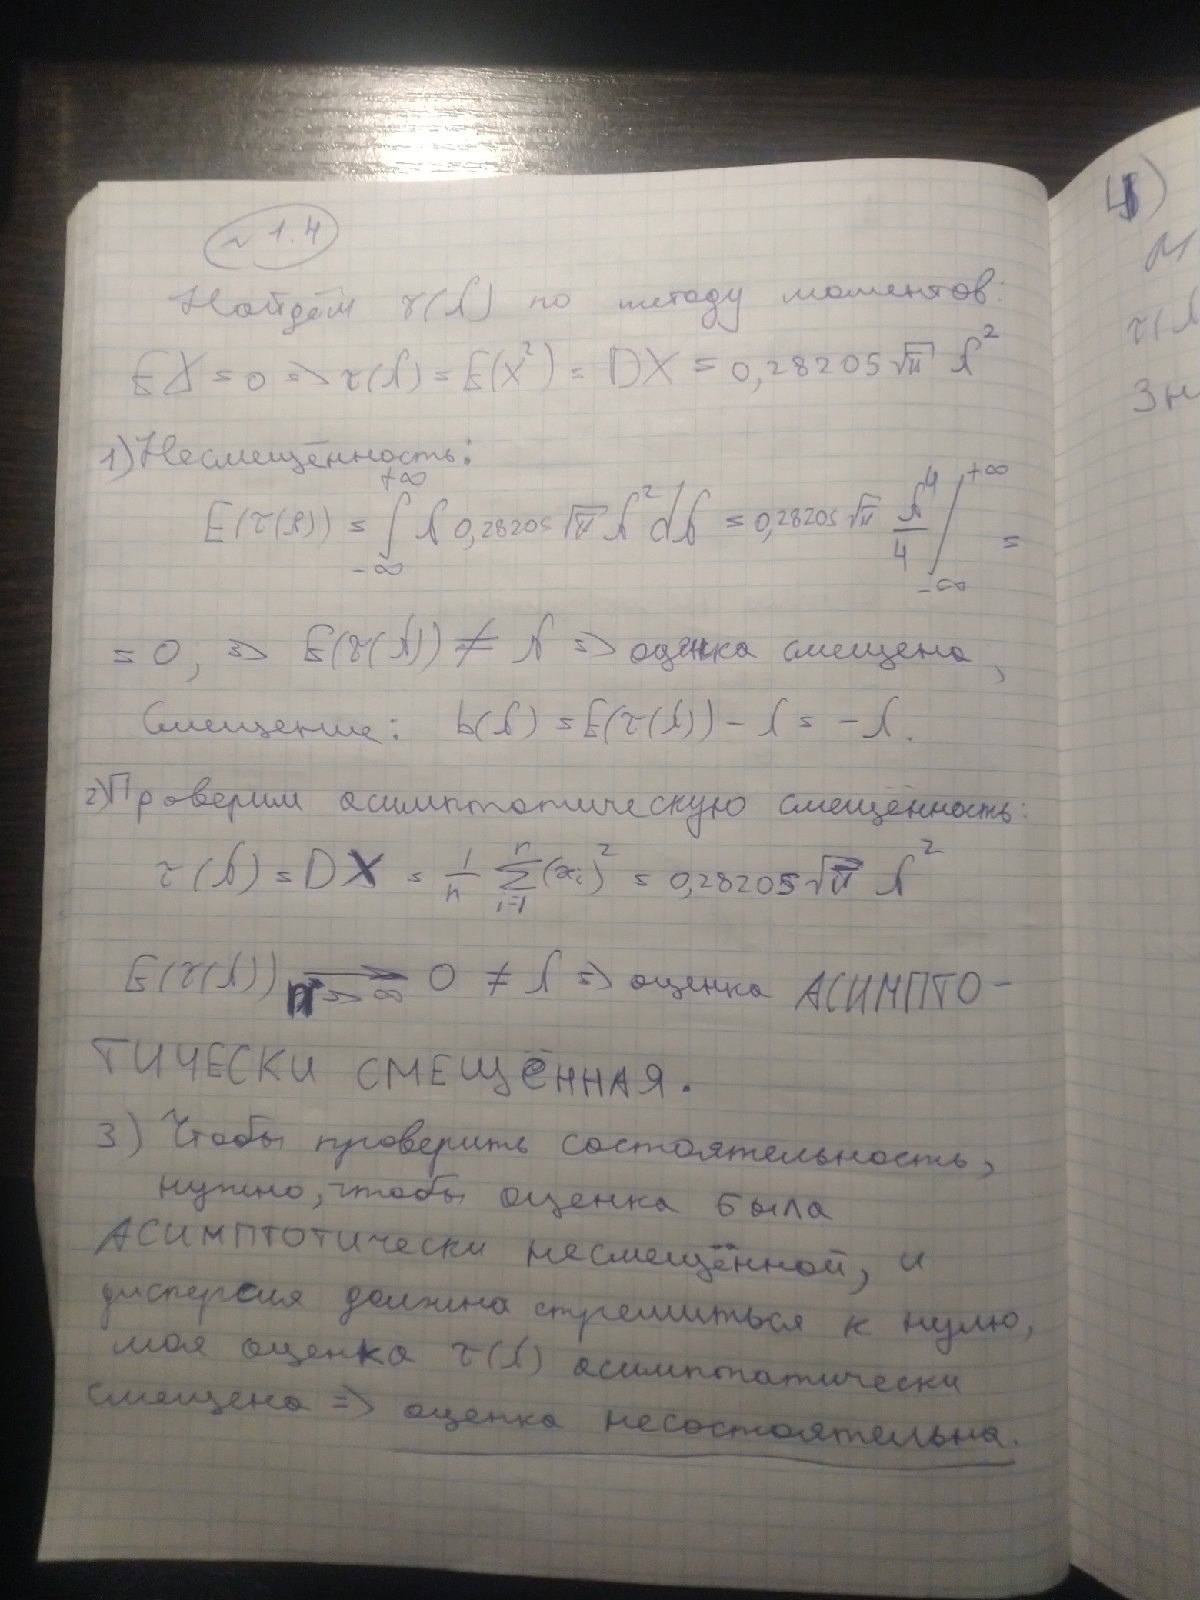 ~ 1.4
Найдём τ(Λ) по методу моментов:
EX = 0 => τ(Λ) = E(X²) = DX = 0,28205 √π Λ²
1) Несмещённость:
E(τ(Λ)) = ∫_{-∞}^{+∞} Λ 0,28205 √π Λ² dΛ = 0,28205 √π Λ⁴/4 |_{-∞}^{+∞} =
= 0; => E(τ(Λ)) ≠ Λ => оценка смещена,
Смещение: b(Λ) = E(τ(Λ)) - Λ = -Λ.
2) Проверим асимптотическую смещённость:
τ(Λ) = DX = 1/n Σ_{i=1}^{n} (xᵢ)² = 0,28205 √π Λ²
E(τ(Λ)) →_{n→∞} 0 ≠ Λ => оценка АСИМПТО-
ТИЧЕСКИ СМЕЩЁННАЯ.
3) Чтобы проверить состоятельность,
нужно, чтобы оценка была
АСИМПТОТИчески несмещённой, и
дисперсия должна стремиться к нулю,
моя оценка τ(Λ) асимптотически
смещена => оценка несостоятельна.
4)
τ(Λ
Зн